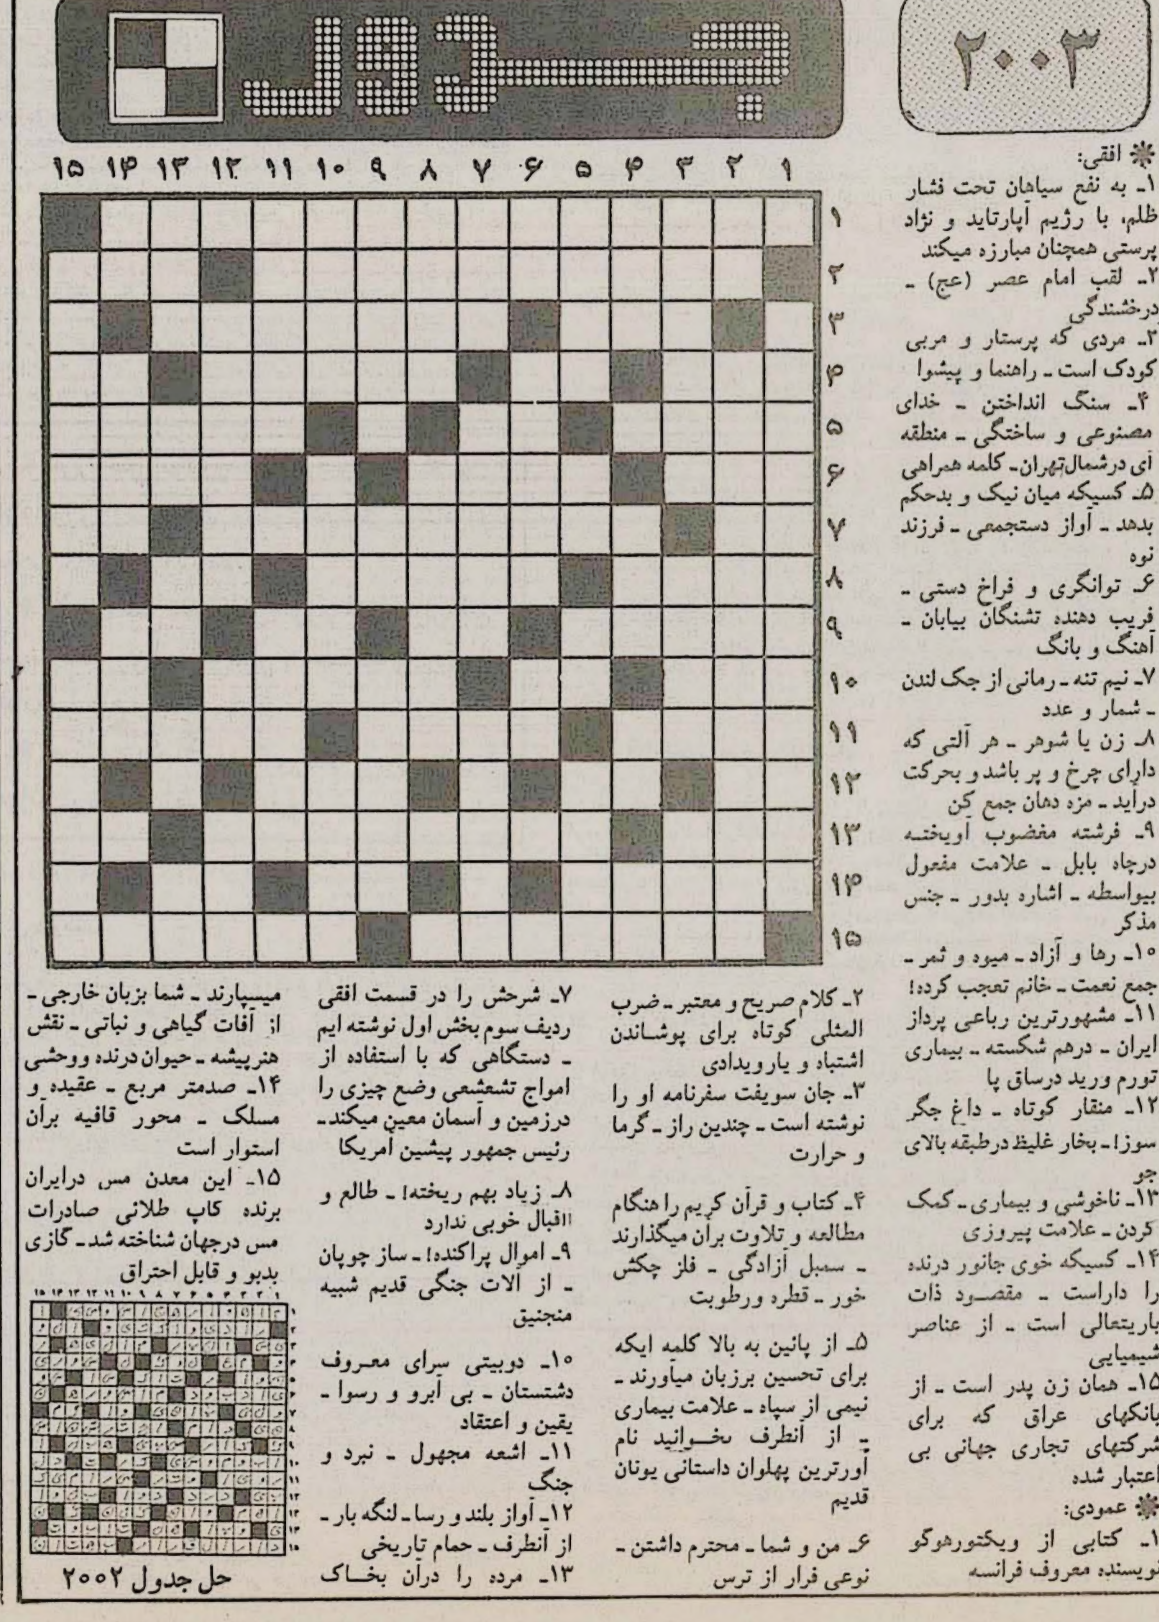 ۲۰۰۳
جدول
۱۵ ۱۴ ۱۳ ۱۲ ۱۱ ۱۰ ۹ ۸ ۷ ۶ ۵ ۴ ۳ ۲ ۱
۱
۲
۳
۴
۵
۶
۷
۸
۹
۱۰
۱۱
۱۲
۱۳
۱۴
۱۵
افقی:
۱ـ به نفع سیاهان تحت فشار
ظلم، با رژیم آپارتاید و نژاد
پرستی همچنان مبارزه میکند
۲ـ لقب امام عصر (عج) ـ
درخشندگی
۳ـ مردی که پرستار و مربی
کودک است ـ راهنما و پیشوا
۴ـ سنگ انداختن ـ خدای
مصنوعی و ساختگی ـ منطقه
ای درشمال‌تهران ـ کلمه همراهی
۵ـ کسیکه میان نیک و بدحکم
بدهد ـ آواز دستجمعی ـ فرزند
نوه
۶ـ توانگری و فراخ دستی ـ
فریب دهنده تشنگان بیابان ـ
آهنگ و بانگ
۷ـ نیم تنه ـ رمانی از جک لندن
ـ شمار و عدد
۸ـ زن یا شوهر ـ هر آلتی که
دارای چرخ و پر باشد و بحرکت
درآید ـ مزه دهان جمع کن
۹ـ فرشته مغضوب آویخته
درچاه بابل ـ علامت مفعول
بیواسطه ـ اشاره بدور ـ جنس
مذکر
۱۰ـ رها و آزاد ـ میوه و ثمر ـ
جمع نعمت ـ خانم تعجب کرده!
۱۱ـ مشهورترین رباعی پرداز
ایران ـ درهم شکسته ـ بیماری
تورم ورید درساق پا
۱۲ـ منقار کوتاه ـ داغ جگر
سوز! ـ بخار غلیظ درطبقه بالای
جو
۱۳ـ ناخوشی و بیماری ـ کمک
کردن ـ علامت پیروزی
۱۴ـ کسیکه خوی جانور درنده
را داراست ـ مقصود ذات
باریتعالی است ـ از عناصر
شیمیایی
۱۵ـ همان زن پدر است ـ از
بانکهای عراق که برای
شرکتهای تجاری جهانی بی
اعتبار شده
عمودی:
۱ـ کتابی از ویکتورهوگو
نویسنده معروف فرانسه
۲ـ کلام صریح و معتبر ـ ضرب
المثلی کوتاه برای پوشاندن
اشتباه و یا رویدادی
۳ـ جان سویفت سفرنامه او را
نوشته است ـ چندین راز ـ گرما
و حرارت
۴ـ کتاب و قرآن کریم را هنگام
مطالعه و تلاوت برآن میگذارند
ـ سمبل آزادگی ـ فلز چکش
خور ـ قطره ورطوبت
۵ـ از پائین به بالا کلمه ایکه
برای تحسین برزبان میآورند ـ
نیمی از سپاه ـ علامت بیماری
ـ از آنطرف بخوانید نام
آورترین پهلوان داستانی یونان
قدیم
۶ـ من و شما ـ محترم داشتن ـ
نوعی فرار از ترس
۷ـ شرحش را در قسمت افقی
ردیف سوم بخش اول نوشته ایم
ـ دستگاهی که با استفاده از
امواج تشعشعی وضع چیزی را
درزمین و آسمان معین میکند ـ
رئیس جمهور پیشین آمریکا
۸ـ زیاد بهم ریخته! ـ طالع و
اقبال خوبی ندارد
۹ـ اموال پراکنده! ـ ساز چوپان
ـ از آلات جنگی قدیم شبیه
منجنیق
۱۰ـ دوبیتی سرای معروف
دشتستان ـ بی آبرو و رسوا ـ
یقین و اعتقاد
۱۱ـ اشعه مجهول ـ نبرد و
جنگ
۱۲ـ آواز بلند و رسا ـ لنگه بار ـ
از آنطرف ـ حمام تاریخی
۱۳ـ مرده را درآن بخاک
میسپارند ـ شما بزبان خارجی ـ
از آفات گیاهی و نباتی ـ نقش
هنرپیشه ـ حیوان درنده ووحشی
۱۴ـ صدمتر مربع ـ عقیده و
مسلک ـ محور قافیه برآن
استوار است
۱۵ـ این معدن مس درایران
برنده کاپ طلائی صادرات
مس درجهان شناخته شد ـ گازی
بدبو و قابل احتراق
حل جدول ۲۰۰۲